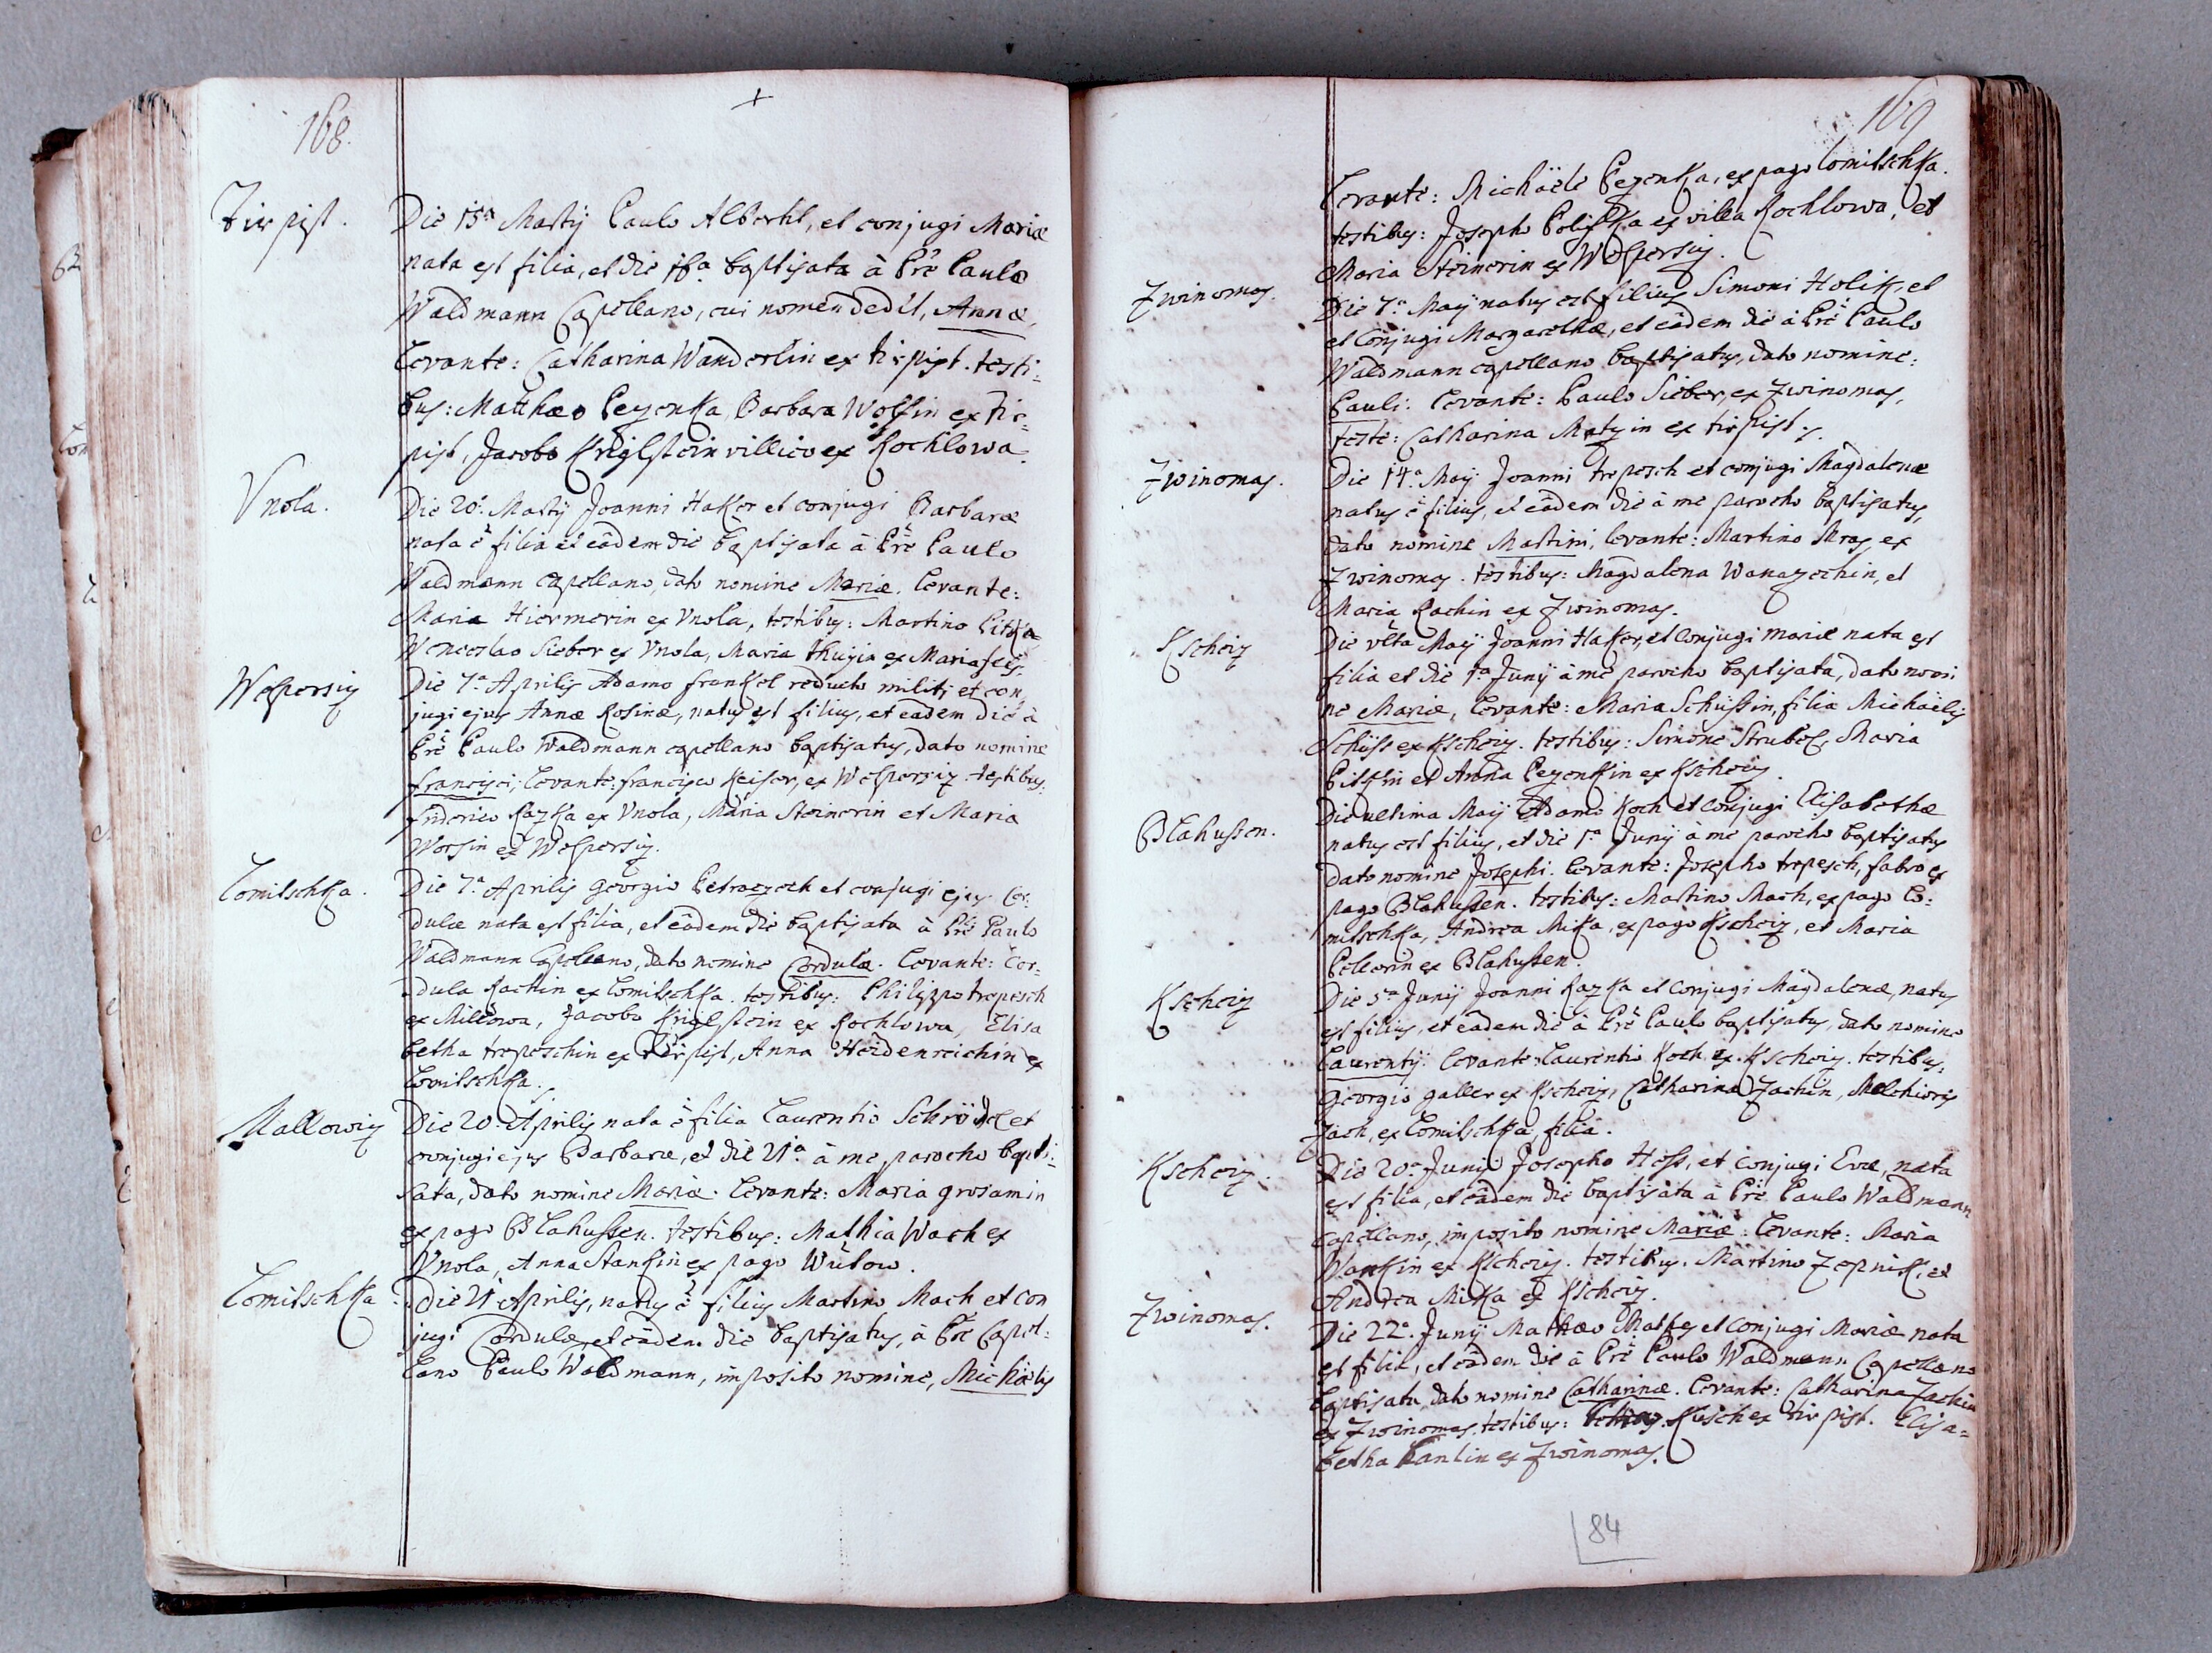 168.
Tirpist.
Die 15ª Martÿ Paulo Albertil, et conjugi Mariæ
nata est filia, et die 16ª baptisata à Pre Paulo
Waldmann Capellano, cui nomen dedit, Annæ,
levante: Catharina Wanderlin ex tirpist. testi:
bus: Matthæo Pezenka, Barbara Wolfin ex Tir:
pist, Jacobo Kriglstein villico ex Rochlowa.
Vnola.
Die 20. Martÿ Joanni Haker et conjugi Barbaræ
nata ē filia et eâdem die baptisata à Pre Paulo
Waldmann capellano, dato nomine Mariæ. levante:
Maria Hiermerin ex Vnola, testibus: Martino
Wenceslao Sieber ex Vnola, Maria ex
Wespersiz
Die 7ª Aprilis Adamo frankel reducto militi et con
jugi ejus Annæ Rosinæ, natus est filius, et eâdem die à
Pre Paulo Waldmann capellano baptisatus, dato nomine
francisci, levante: francisco Keiser, ex Wespersiz. testibus:
friderico Kazka ex Vnola, Maria Steinerin et Maria
Worsin ex Wespersiz.
Lomitschka.
Die 7ª Aprilis Georgio Petraczech et conjugi ejus Cor:
dulæ nata est filia, et eâdem die baptisata à Pre Paulo
Waldmann Capellano, dato nomine Cordulæ. levante: Cor:
dula Rachin ex Lomitschka. testibus: Philippo trepesch
ex Millowa, Jacobo Kriglstein ex Rochlowa, Elisa
betha trepeschin ex Tirpist, Anna Heidenreichin ex
Lomitschka.
Mallowiz
Die 20. Aprilis nata ē filia Laurentio Schrödl et
conjugi ejus Barbaræ, et die 21ª à me parocho bapti:
sata, dato nomine Mariæ. levante: Maria grosamin
ex pago Blahussen. testibus: Mathia Wach ex
Vnola, Anna Stankin ex pago Wutow.
Lomitschka
Die 21 Aprilis, natus ē filius Martino Mach et con
jugi Cordulæ, et eâdem die baptisatus, à Pre Capel:
lano Paulo Waldmann, imposito nomine, Michaëlis
169
Levante: Michaële Pezenka, ex pago Lomitschka.
testibus: Josepho Polifka ex villa Rochlowa, et
Maria Steinerin ex Wespersiz.
Zwinomas.
Die 7ª Maÿ natus est filius Simoni Holik, et
et Conjugi Margarethæ, et eâdem die à Pre Paulo
Waldmann capellano baptisatus, dato nomine:
Pauli. levante: Paulo Sieber, ex Zwinomas,
teste: Catharina Matzin ex tirpist.
Zwinomas.
Die 14ª Maÿ Joanni trepesch et conjugi Magdalenæ
natus ē filius, et eâdem die à me parocho baptisatus,
dato nomine Martini, levante: Martino Mras, ex
Zwinomas. testibus: Magdalena Wanazechin, et
Maria Rachin ex Zwinomas.
Kscheiz
Die vlta Maÿ Joanni Haker, et conjugi Mariæ nata est
filia et die 1ª Junÿ à me parocho baptisata, dato nomi
ne Mariæ, levante: Maria Schüssin, filia Michaëlis
Schüss ex Kscheiz. testibus: Simone Strubel, Maria
Pitkin et Anna Pezenkin ex Kscheiz.
Blahussen.
Die ultima Maÿ Adamo Koch et conjugi Elisabethæ
natus est filius, et die 1ª Junÿ à me parocho baptisatus
dato nomine Josephi. levante: Josepho trepesch, fabro ex
pago Blahussen. testibus: Martino Mach, ex pago Lo:
mitschka, Andrea Mika, ex pago Kscheiz, et Maria
Pellerin ex Blahussen.
Kscheiz
Die 5ª Junÿ Joanni Kazka et conjugi Magdalenæ, natus
est filius, et eâdem die à Pre Paulo baptisatus, dato nomine
Laurentÿ. levante: Laurentio Koch ex Kscheiz. testibus:
Georgio galler ex Kscheiz, Catharina Zachin, Melchioris
Zach, ex Lomitschka, filia.
Kscheiz.
Die 20ª Junÿ Josepho Hess, et conjugi Evæ, nata
est filia, et eâdem die baptisata à Pre Paulo Waldmann
capellano, imposito nomine Mariæ: levante: Maria
Wankin ex Kscheiz. testibus. Martino Zepnik, et
Andrea Mika ex Kscheiz.
Zwinomas.
Die 22ª. Junÿ Mathæo Mathes et conjugi Mariæ nata
est filia, et eâdem die à Pre Paulo Waldmann Capellano
baptisata, dato nomine Catharinæ. levante: Catharina Zachin
ex Zwinomas. testibus: Kusch ex tirpist. Elisa=
betha ex Zwinomas.
84